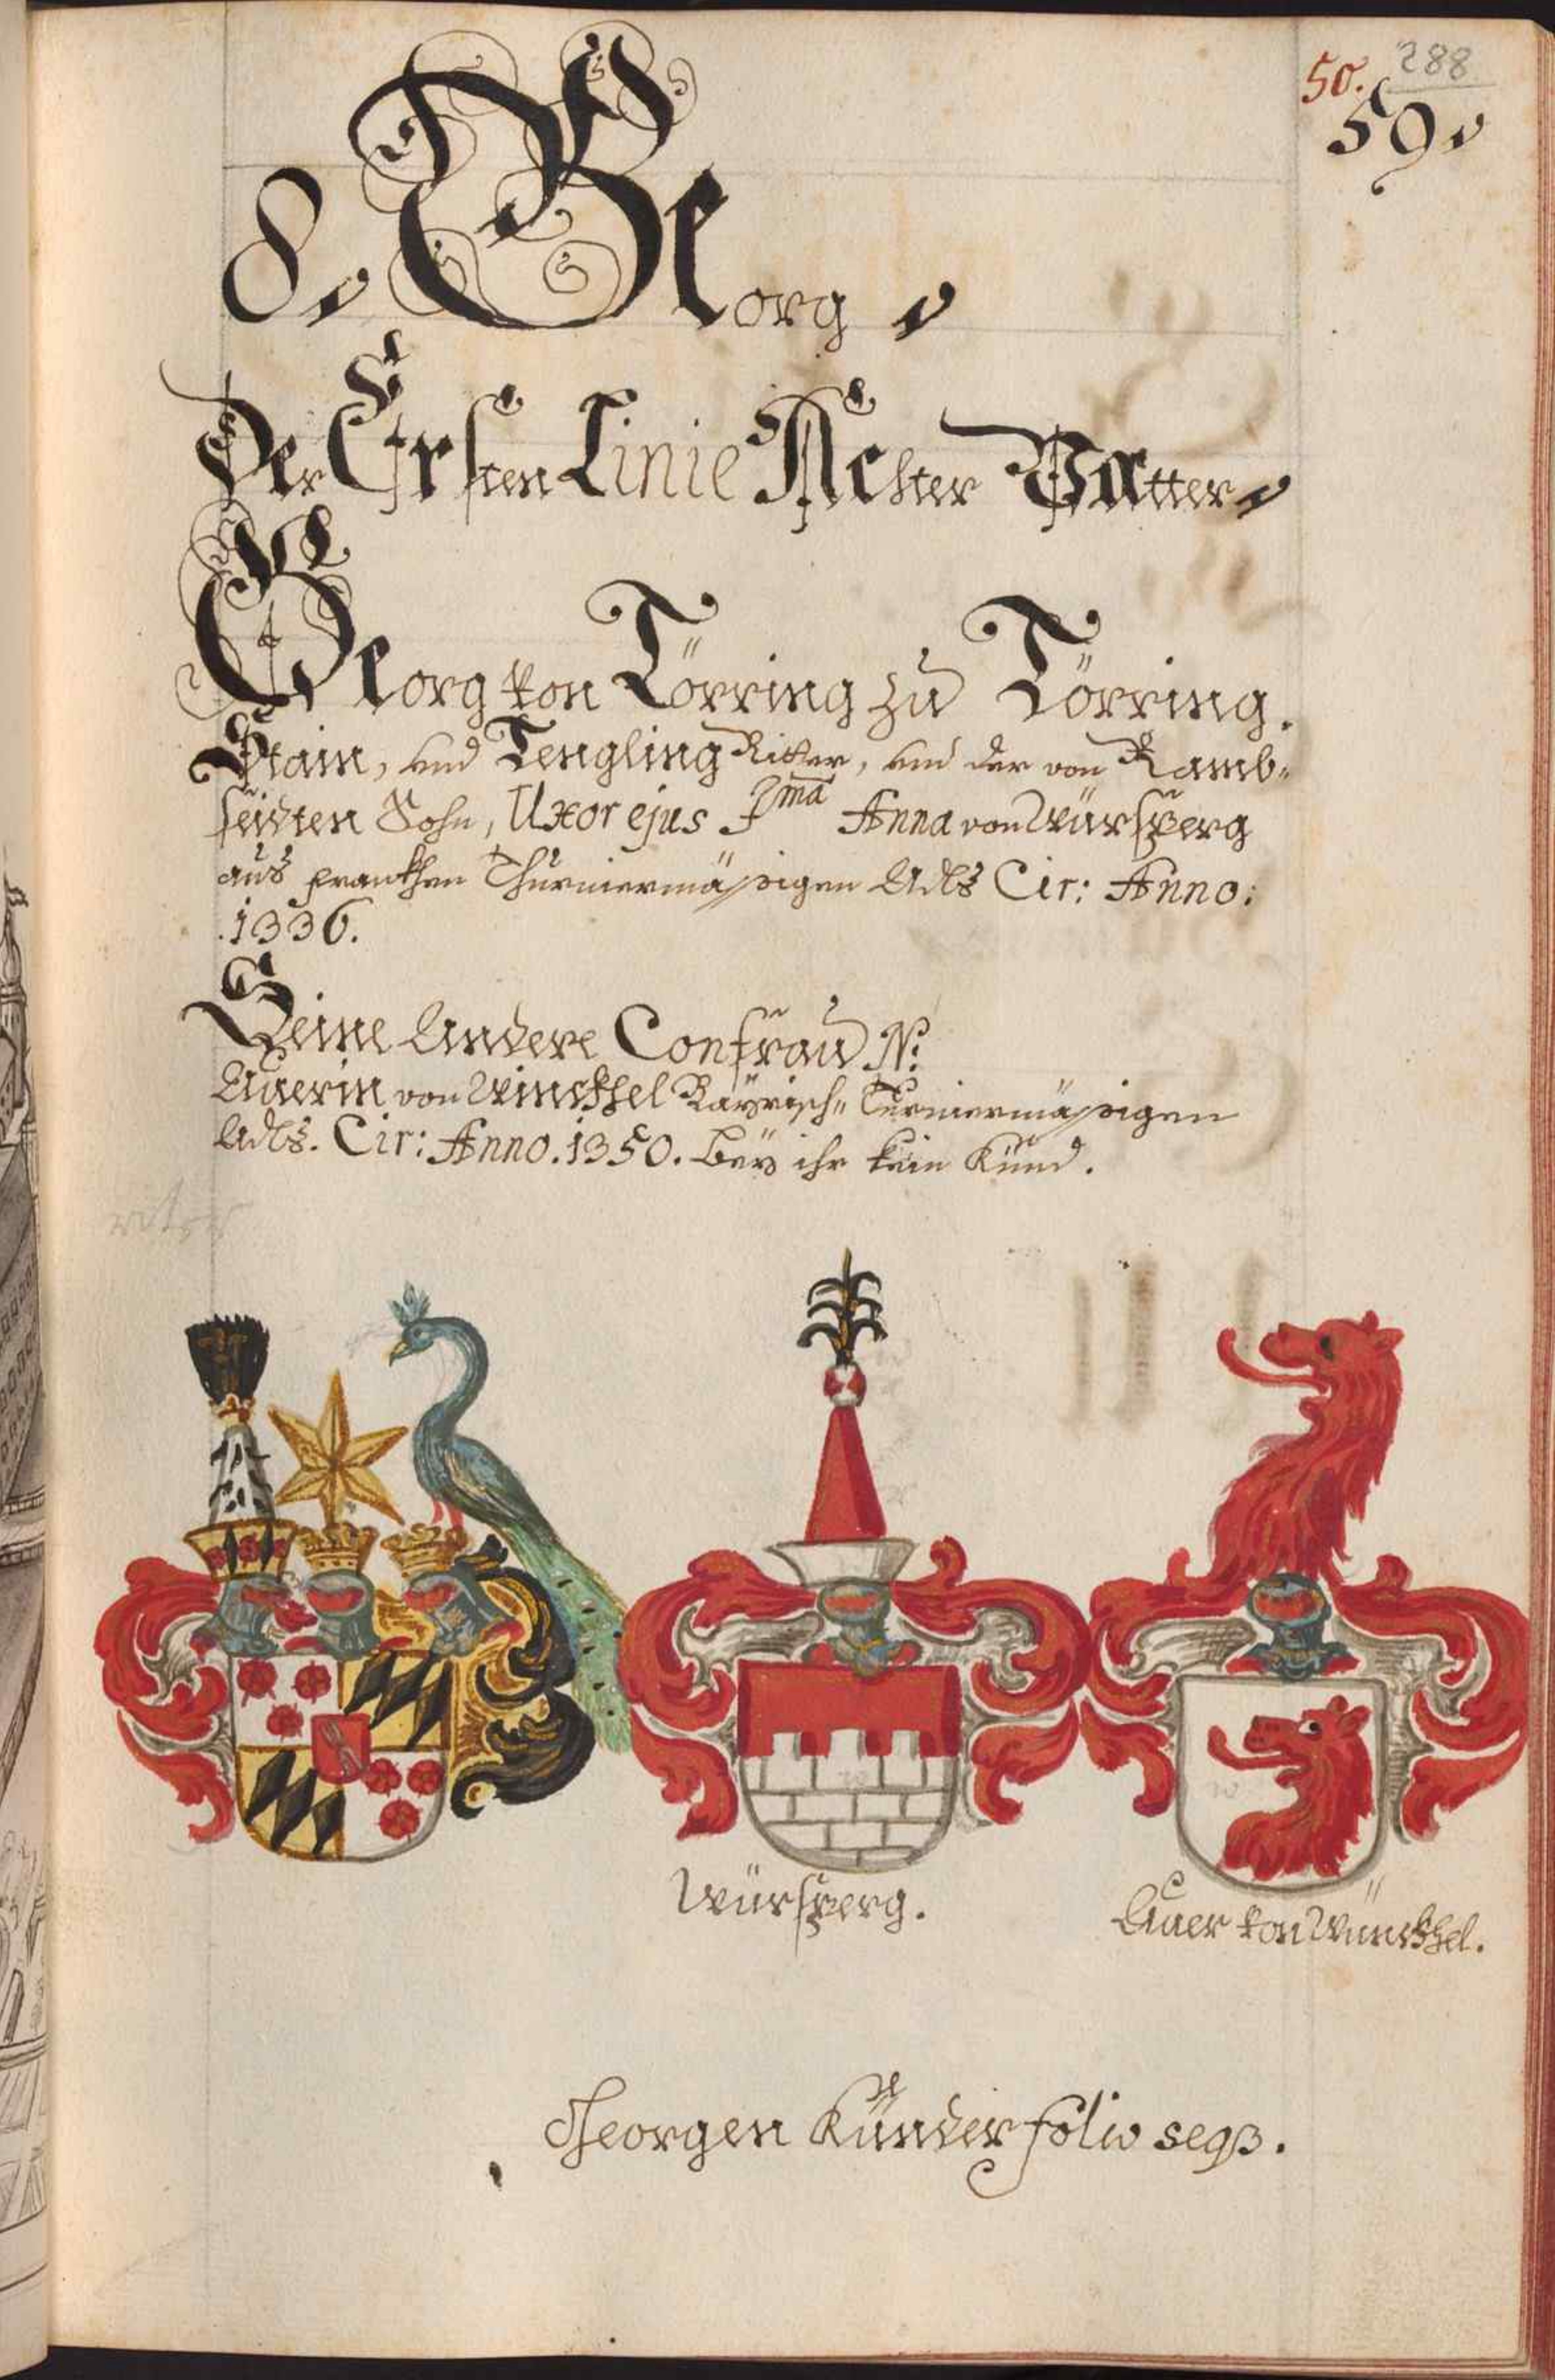 50. 288
59.
8. Georg.
Der Ersten Linie Achter Vatter.
Georg von Törring zu Törring.
Stain, und Tengling Ritter, und der von Ramb-
seidten Sohn, Uxor ejus Ima Anna von Würsperg
aus frankhen Thurniermässigen Adls Cir: Anno:
.1336.
Seine Andere Confrau N:
Auerin von Winckhel Bayrisch- Turniermässigen
Adls. Cir: Anno. 1350. Beÿ ihr kein Künd.
Würsperg.
Auer von Winckhel.
Georgen Künder folio seqß.